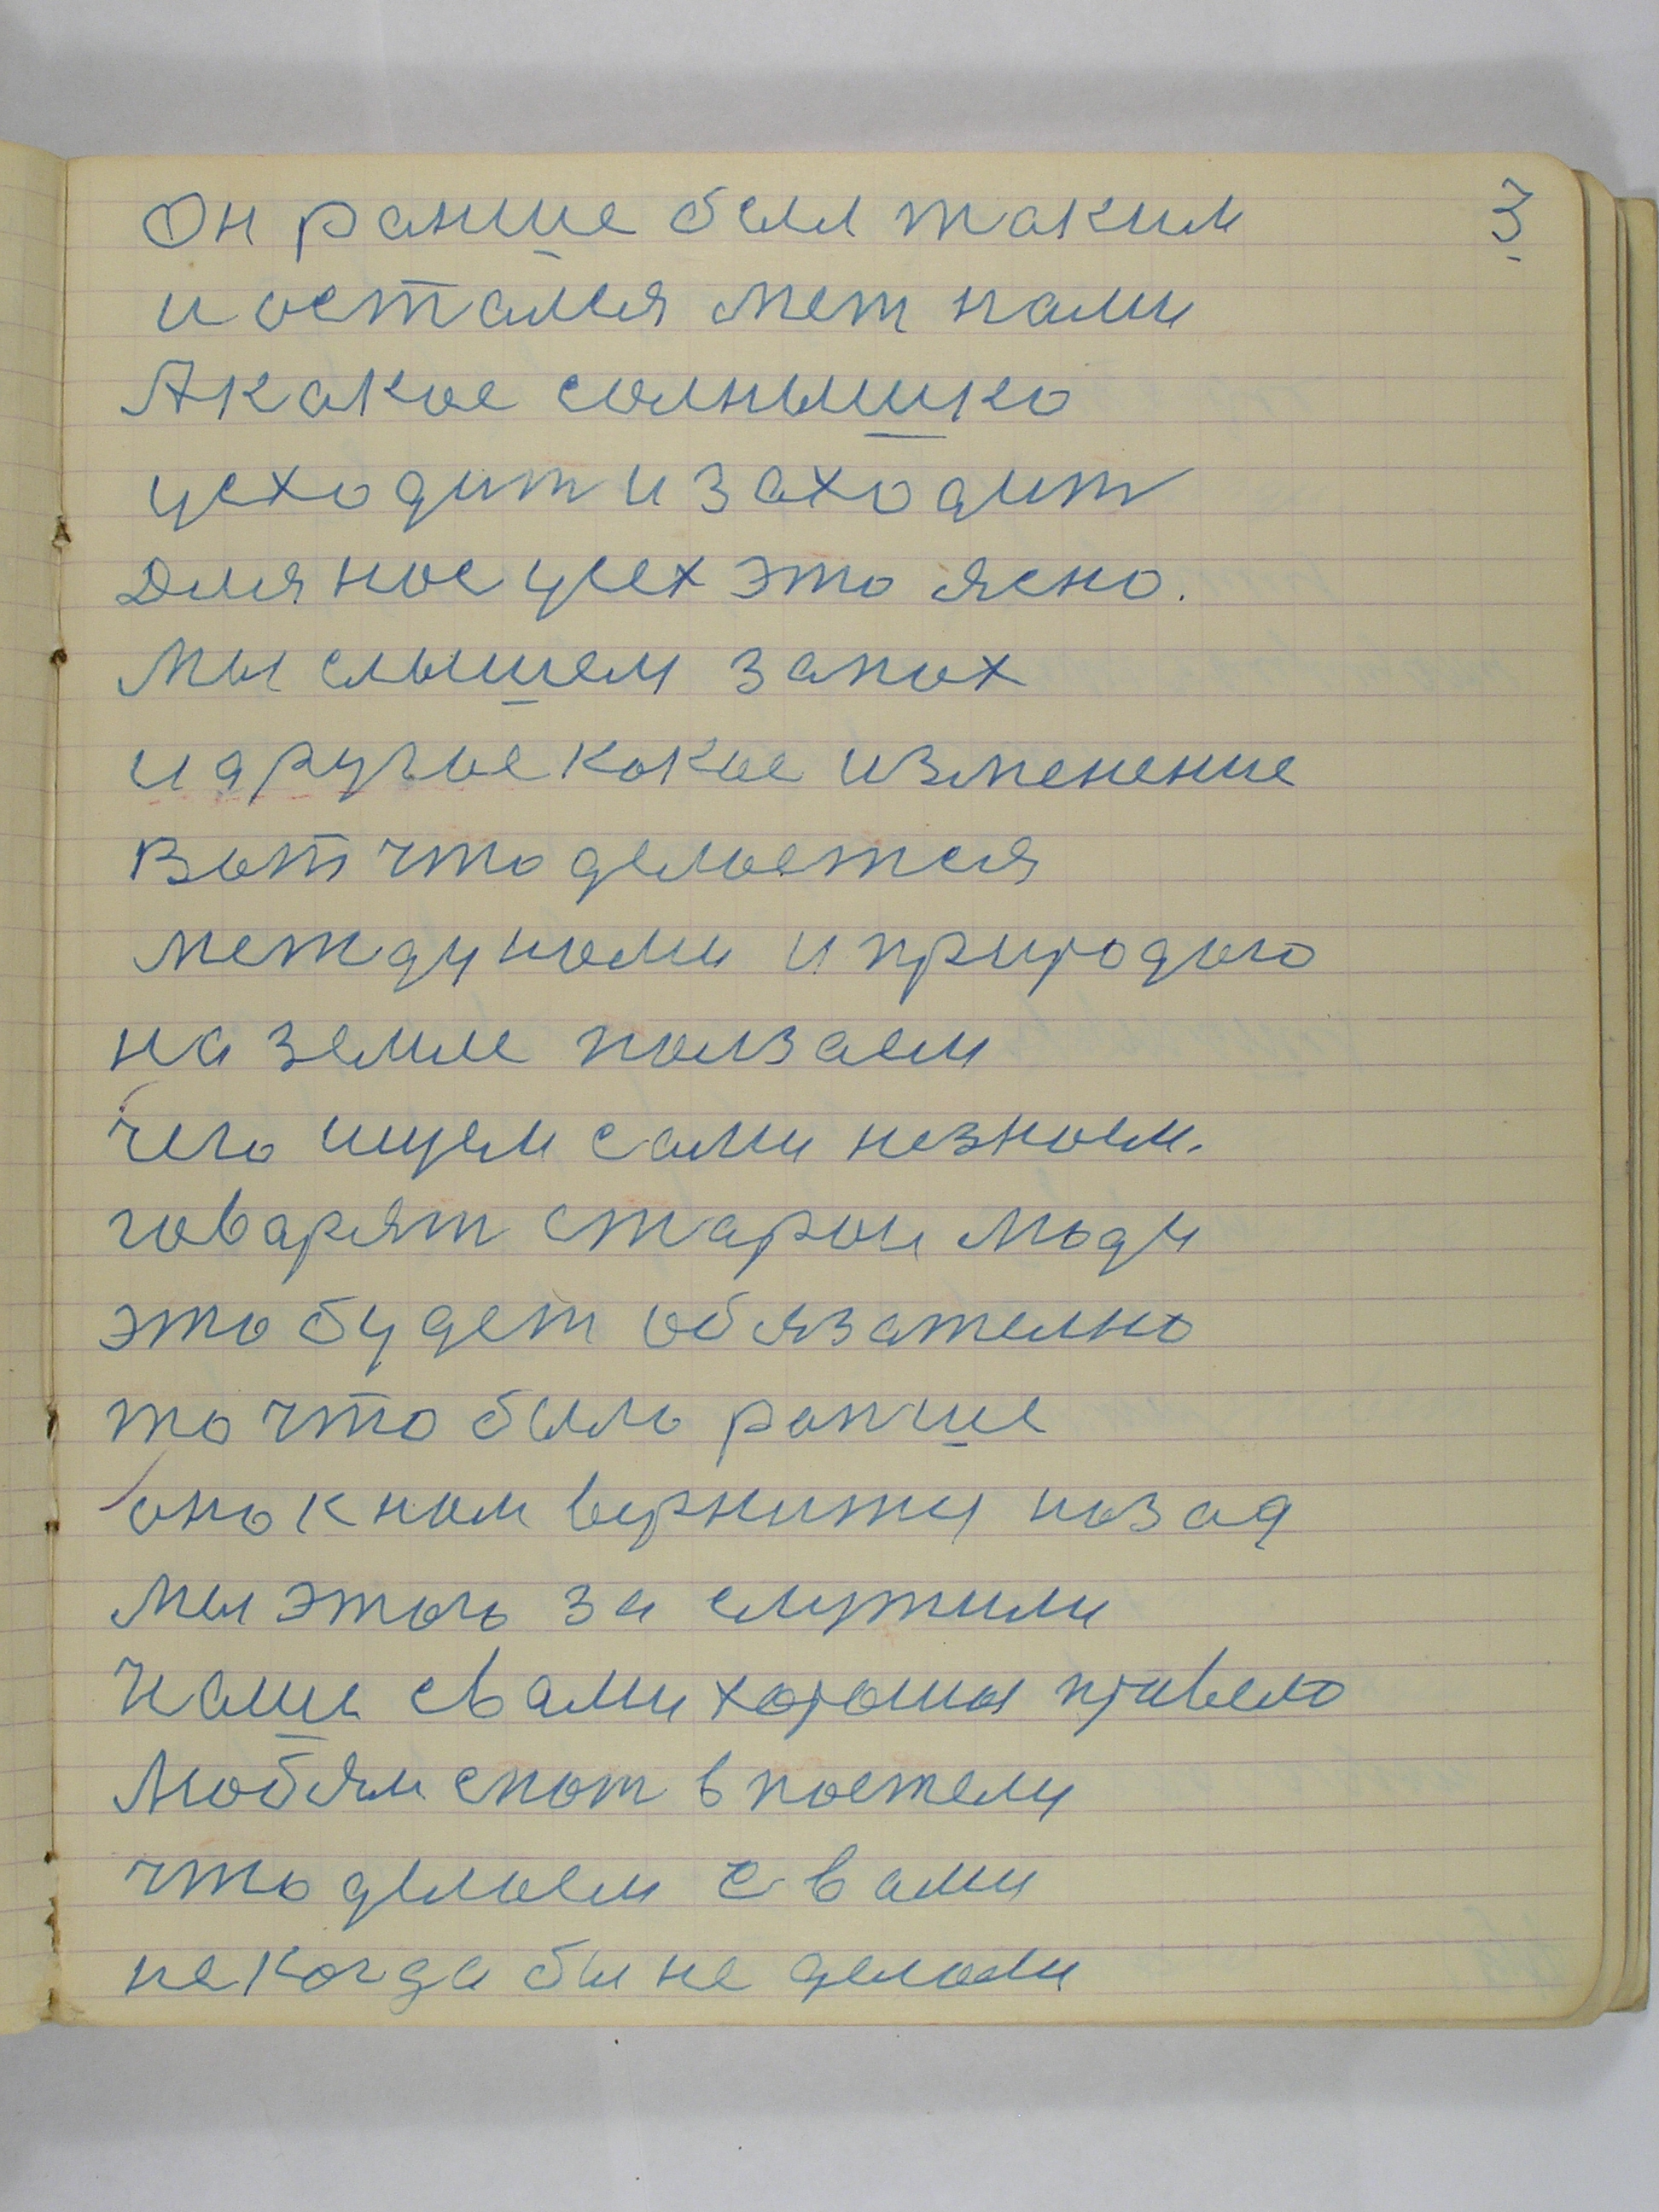 Он ранше был таким 3
и остался меж нами
А какое солнышко
усходит и заходит
Для нас усех это ясно.
Мы слышем запах
и другое какое изменение
Вот что делается
между нами и природою
на земле ползаем
чего ищем сами незнаем.
говарят старые люди
это будет обязателно
то что было ранше
оно к нам вернится назад
мы этого за служили
Наши свами хорошы
Любям спат в постели
что делаем с вами
некогда бы не делали